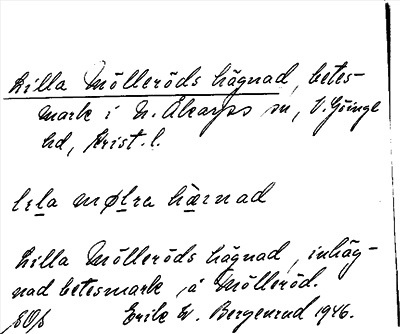 Lilla Mölleröds hägnad, betes-
mark i N. Åkarps sn, V. Göinge
hd, Krist. l.
lela mølra hærnad
Lilla Mölleröds hägnad, inhäg-
nad betesmark, å Mölleröd.
Erik W. Bergenrud 1946.